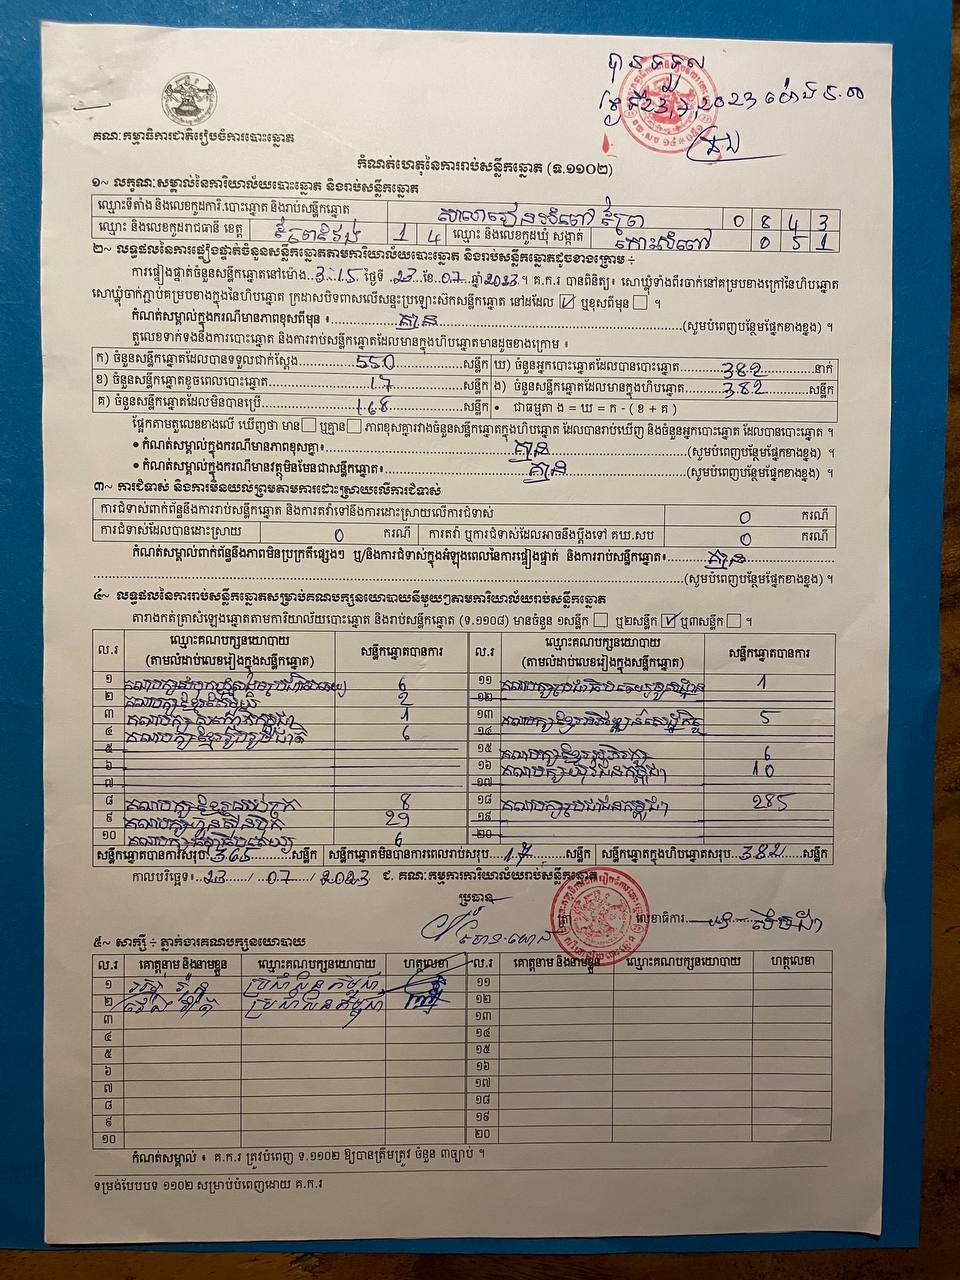 បានទទួល
ថ្ងៃទី23,7,2023 ម៉ោង
គណៈកម្មាធិការជាតិរៀបចំការបោះឆ្នោត
កំណត់ហេតុនៃការរាប់សន្លឹកឆ្នោត (ទ.១១០២)
១~ លក្ខណៈសម្គាល់នៃការិយាល័យបោះឆ្នោត និងរាប់សន្លឹកឆ្នោត
ឈ្មោះទីតាំង និងលេខកូដការិ.បោះឆ្នោត និងរាប់សន្លឹកឆ្នោត សាលារៀនសំពៅ 0 8 4 3
ឈ្មោះ និងលេខកូដរាជធានី ខេត្ត ព្រៃវែង 1 4 ឈ្មោះ និងលេខកូដឃុំ សង្កាត់ កោះសំពៅ 0 5 1
២~ លទ្ធផលនៃការផ្ទៀងផ្ទាត់ចំនួនសន្លឹកឆ្នោតតាមការិយាល័យបោះឆ្នោត និងរាប់សន្លឹកឆ្នោតដូចខាងក្រោម ÷
ការផ្ទៀងផ្ទាត់ចំនួនសន្លឹកឆ្នោតនៅម៉ោង..3:15. ថ្ងៃទី ..23..ខែ..07..ឆ្នាំ2023។ គ.ក.រ បានពិនិត្យ៖ សោឃ្លុំទាំងពីរចាក់នៅគម្របខាងក្រៅនៃហិបឆ្នោត
សោឃ្លុំចាក់ភ្ជាប់គម្របខាងក្នុងនៃហិបឆ្នោត ក្រដាសបិទពាសលើសន្ទះប្រឡោះសិកសន្លឹកឆ្នោត នៅដដែល ☑ ឬខុសពីមុន ☐ ។
កំណត់សម្គាល់ក្នុងករណីមានភាពខុសពីមុន ៖ គ្មាន (សូមបំពេញបន្ថែមផ្នែកខាងខ្នង) ។
តួលេខទាក់ទងនឹងការបោះឆ្នោត និងការរាប់សន្លឹកឆ្នោតដែលមានក្នុងហិបឆ្នោតមានដូចខាងក្រោម ៖
ក) ចំនួនសន្លឹកឆ្នោតដែលបានទទួលជាក់ស្តែង 550 សន្លឹក ឃ) ចំនួនអ្នកបោះឆ្នោតដែលបានបោះឆ្នោត 382 នាក់
ខ) ចំនួនសន្លឹកឆ្នោតខូចពេលបោះឆ្នោត សន្លឹក ង) ចំនួនសន្លឹកឆ្នោតដែលមានក្នុងហិបឆ្នោត 382 សន្លឹក
គ) ចំនួនសន្លឹកឆ្នោតដែលមិនបានប្រើ 168 សន្លឹក • ជាធម្មតា ង = ឃ = ក - ( ខ + គ )
ផ្អែកតាមតួលេខខាងលើ ឃើញថា មាន☐ ឬគ្មាន☐ ភាពខុសគ្នារវាងចំនួនសន្លឹកឆ្នោតក្នុងហិបឆ្នោត ដែលបានរាប់ឃើញ និងចំនួនអ្នកបោះឆ្នោត ដែលបានបោះឆ្នោត ។
• កំណត់សម្គាល់ក្នុងករណីមានភាពខុសគ្នា៖ គ្មាន (សូមបំពេញបន្ថែមផ្នែកខាងខ្នង) ។
• កំណត់សម្គាល់ក្នុងករណីមានវត្ថុមិនមែនជាសន្លឹកឆ្នោត៖ គ្មាន (សូមបំពេញបន្ថែមផ្នែកខាងខ្នង) ។
៣~ ការជំទាស់ និងការមិនយល់ព្រមតាមការដោះស្រាយលើការជំទាស់
ការជំទាស់ពាក់ព័ន្ធនឹងការរាប់សន្លឹកឆ្នោត និងការតវ៉ាទៅនឹងការដោះស្រាយលើការជំទាស់ 0 ករណី
ការជំទាស់ដែលបានដោះស្រាយ 0 ករណី ការតវ៉ា ឬការជំទាស់ដែលអាចនឹងប្តឹងទៅ គឃ.សប 0 ករណី
កំណត់សម្គាល់ពាក់ព័ន្ធនឹងភាពមិនប្រក្រតីផ្សេងៗ ឬ/និងការជំទាស់ក្នុងអំឡុងពេលនៃការផ្ទៀងផ្ទាត់ និងការរាប់សន្លឹកឆ្នោត៖ គ្មាន
(សូមបំពេញបន្ថែមផ្នែកខាងខ្នង) ។
៤~ លទ្ធផលនៃការរាប់សន្លឹកឆ្នោតសម្រាប់គណបក្សនយោបាយនីមួយៗតាមការិយាល័យរាប់សន្លឹកឆ្នោត
តារាងកត់ត្រាសំឡេងឆ្នោតតាមការិយាល័យបោះឆ្នោត និងរាប់សន្លឹកឆ្នោត (ទ.១១០៨) មានចំនួន ១សន្លឹក ☐ ឬ២សន្លឹក ☑ ឬ៣សន្លឹក ☐ ។
ល.រ ឈ្មោះគណបក្សនយោបាយ (តាមលំដាប់លេខរៀងក្នុងសន្លឹកឆ្នោត) សន្លឹកឆ្នោតបានការ ល.រ ឈ្មោះគណបក្សនយោបាយ (តាមលំដាប់លេខរៀងក្នុងសន្លឹកឆ្នោត) សន្លឹកឆ្នោតបានការ
១ គណបក្ស 6 ១១ គណបក្សប្រជាធិបតេយ្យមូលដ្ឋាន 1
២ គណបក្សខ្មែរ 2 ១២
៣ គណបក្ស 1 ១៣ គណបក្សខ្មែរអភិវឌ្ឍន៍សេដ្ឋកិច្ច 5
៤ គណបក្សខ្មែរ 6 ១៤
៥ ១៥ គណបក្សខ្មែរ 6
៦ ១៦ គណបក្សយុវជនកម្ពុជា 10
៧ ១៧
៨ គណបក្សខ្មែររួបរួមជាតិ 8 ១៨ គណបក្សប្រជាជនកម្ពុជា 285
៩ គណបក្សហ្វ៊ុនស៊ិនប៉ិច 29 ១៩
១០ គណបក្ស 6 ២០
សន្លឹកឆ្នោតបានការសរុប 365 សន្លឹក សន្លឹកឆ្នោតមិនបានការពេលរាប់សរុប 17 សន្លឹក សន្លឹកឆ្នោតក្នុងហិបឆ្នោតសរុប 382 សន្លឹក
កាលបរិច្ឆេទ៖ 23 / 07 / 2023 ជ. គណៈកម្មការការិយាល័យរាប់សន្លឹកឆ្នោត
ប្រធាន
លេខាធិការ
៥~ សាក្សី ÷ ភ្នាក់ងារគណបក្សនយោបាយ
ល.រ គោត្តនាម និងនាមខ្លួន ឈ្មោះគណបក្សនយោបាយ ហត្ថលេខា ល.រ គោត្តនាម និងនាមខ្លួន ឈ្មោះគណបក្សនយោបាយ ហត្ថលេខា
១ ប្រជាជនកម្ពុជា ១១
២ ប្រជាជនកម្ពុជា ១២
៣ ១៣
៤ ១៤
៥ ១៥
៦ ១៦
៧ ១៧
៨ ១៨
៩ ១៩
១០ ២០
កំណត់សម្គាល់ ៖ គ.ក.រ ត្រូវបំពេញ ទ.១១០២ ឱ្យបានត្រឹមត្រូវ ចំនួន ៣ច្បាប់ ។
ទម្រង់បែបបទ ១១០២ សម្រាប់បំពេញដោយ គ.ក.រ